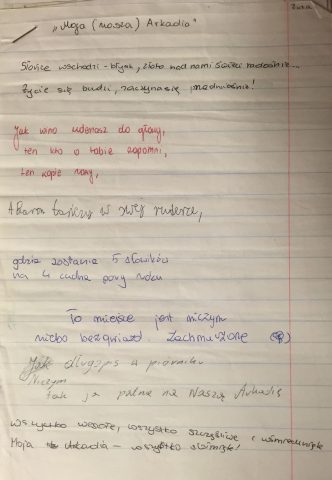 Zuza
„Moja (nasza) Arkadia"
Słońce wschodzi - błysk, złoto nad nami świeci radośnie...
Życie się budzi, zaczyna się przedwiośnie!
Jak wino uderzasz do głowy,
ten kto o tobie zapomni,
ten kopie rowy,
A baran tańczy w swej ruderze,
gdzie zostanie 5 słowików
na 4 cudne pory roku
To miejsce jest niczym
niebo bez gwiazd. Zachmurzone
Jak długopis w piórniku
Niczym
tak ja patrzę na Naszą Arkadię
Wszystko wesołe, wszystko szczęśliwe i
Moja Arkadia - wszystko